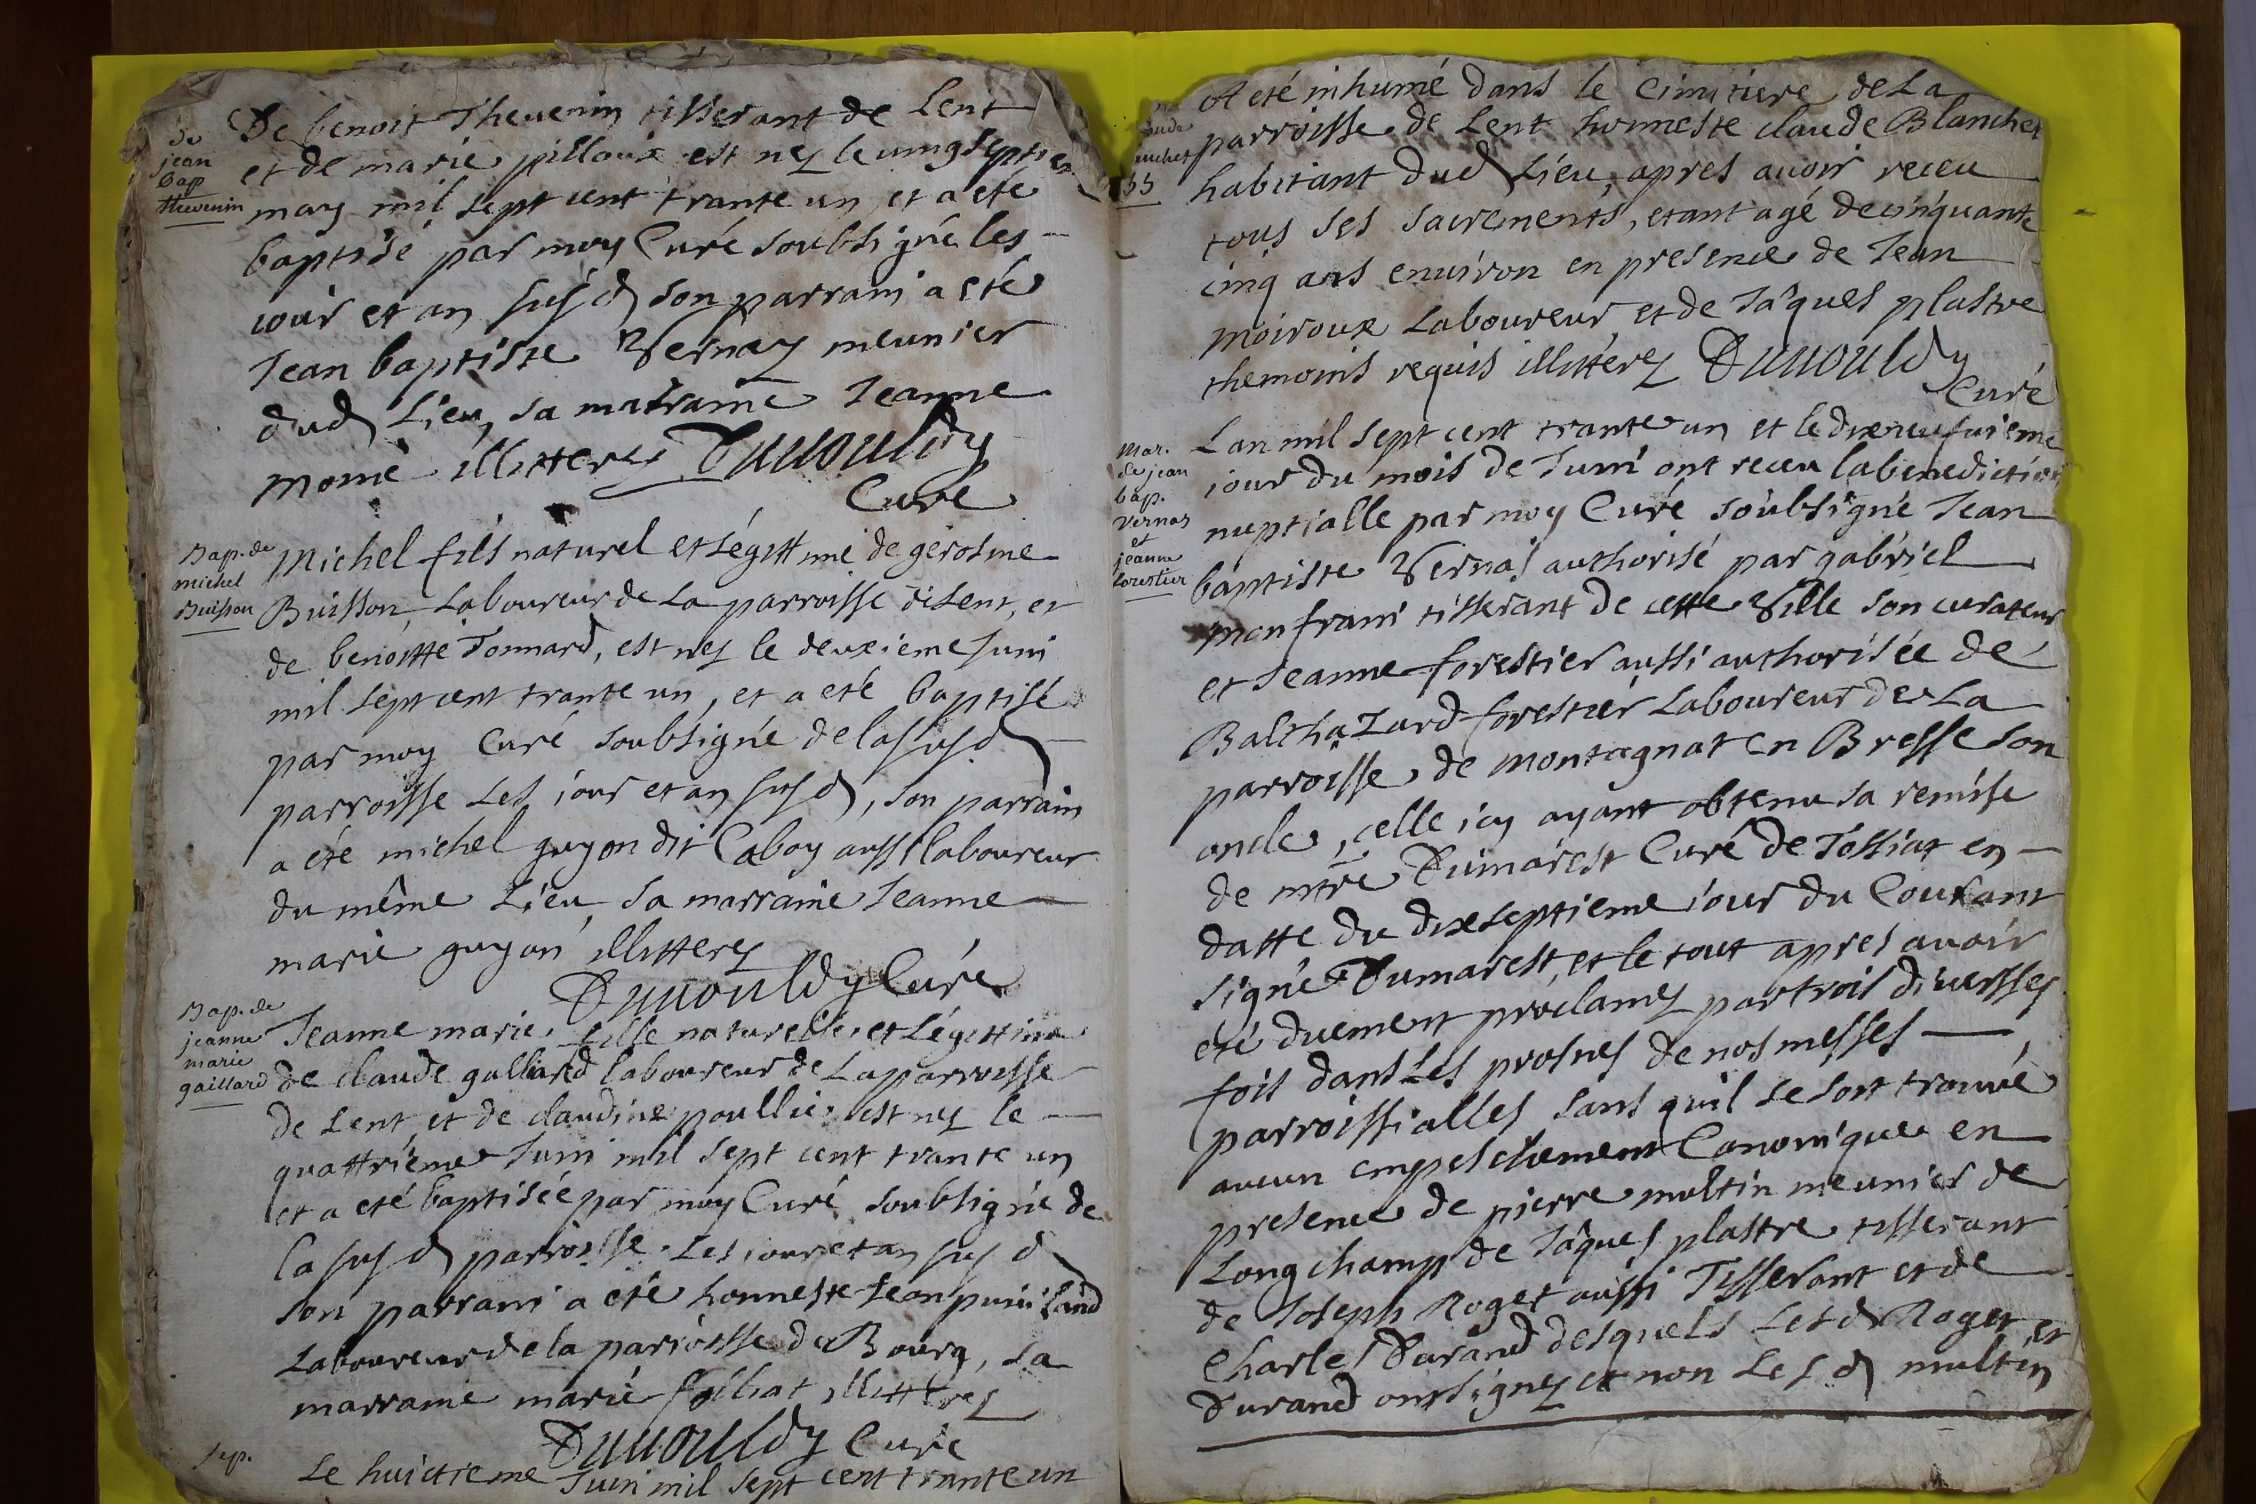 de
jean
bap
thevenin
De benoit Thevenin tisserant de Lent
et de marie pilloux est nez le vingseptie
may mil sept cent trante un et a eté
baptisé par moy Curé soubsigné les
iour et an susd son parrain a eté
Jean baptiste Vernay meunier
dud Lieu, sa marraine Jeanne
illitterez Dunouldy
Curé
Bap. de
michel
Buisson
Michel fils naturel et Légittime de gerosme
Buisson, Laboureur de La parroisse de Lent, et
de benoitte Tonnard, est nez le deuxieme Juin
mil sept cent trante un, et a eté baptisé
par moy Curé soubsigné de la susd
parroisse Les iour et an susd, son parrain
a eté michel guyon dit Caboy aussi laboureur
du même Lieu, sa marraine Jeanne
marie guyon illitterez
Dunouldy Curé
Bap. de
jeanne
marie
gaillard
Jeanne marie fille naturelle et Légittime
de claude galliard laboureur de La parroisse
de Lent et de claudine poullie est nez le
quattrième Juin mil sept cent trante un
et a eté baptisée par moy Curé soubsigné de
la susd parroisse Les iour et an susd
son parrain a eté honneste Jean
Laboureur de la parroisse de Bourg, sa
marraine marie illitterez
Dunouldy Curé
Sep.
Le huictieme Juin mil sept cent trante un
55
A eté inhumé dans le Cimitiere de La
parroisse de Lent honneste claude Blanchet
habitant dud Lieu, apres avoir receu
tous ses sacrements, etant agé de cinquante
cinq ans environ en presence de Jean
Moiroux Laboureur et de Jâques plastre
themoins requis illitterez Dunouldy
Curé
Mar.
de jean
bap.
vernas
et
jeanne
forestier
Lan mil sept cent trante un et le dixneufuieme
iour du mois de Juin ont receu la benediction
nuptialle par moy Curé soubsigné Jean
baptiste Vernas authorisé par gabriel
monfrain tisserant de cette Ville son curateur
et Jeanne forestier aussi authorisée de
Balthazard forestier Laboureur de La
parroisse de montagnat en Bresse son
oncle, celle icy ayant obtenu sa remise
de mtre Dumarest Curé de Tossiat en
datte du dixseptieme iour du Courant
signé Dumarest, et le tout apres avoir
eté duement proclamez par trois diversses
fois dans Les prosnes de nos messes
parroissialles sans quil se soit trouvé
aucun empeschement Canonique en
presence de pierre multin meunier de
Longchamp de Jâques plastre tisserant
de Joseph Roget aussi Tisserant et de
Charles Durand desquels Lesd Roget et
Durand ont signez et non Lesd multin